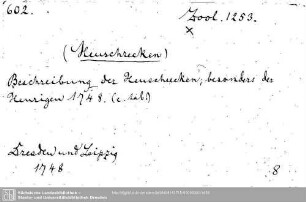 602.
Zool. 1253.
x
(Heuschrecken)
Beschreibung der Heuschrecken, besonders der
Heurigen 1748. (c. tab.)
Dresden und Leipzig
1748
8
Sächsische Landesbibliothek -
Staats- und Universitätsbibliothek Dresden